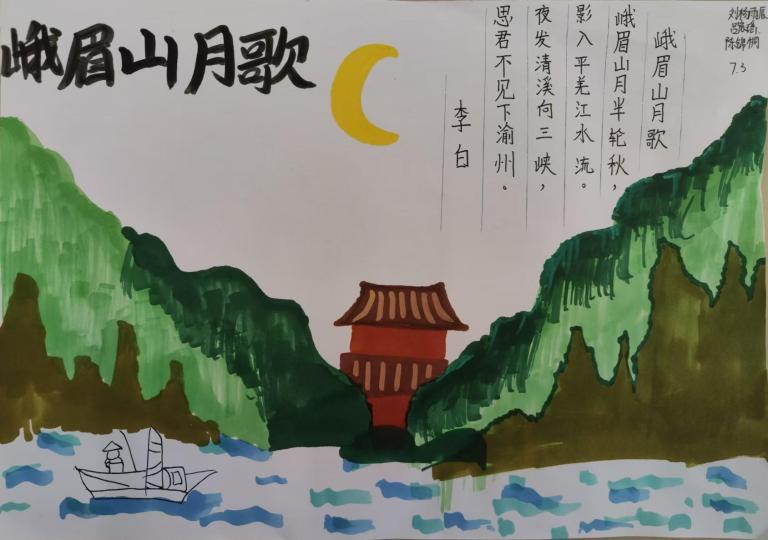 峨眉山月歌
峨眉山月歌
峨眉山月半轮秋，
影入平羌江水流。
夜发清溪向三峡，
思君不见下渝州。
李白
陈锦桐
7.3